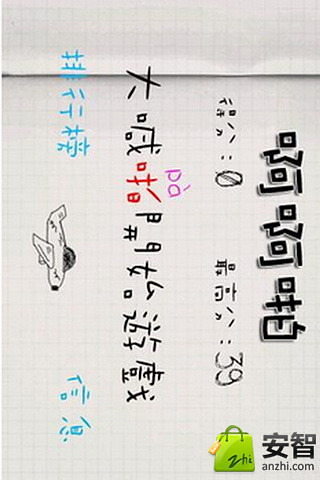 啊啊啪
得分:0
最高分:39
pà
大喊啪開始游戲
排行榜
信息
zhi
安智
anzhi.com